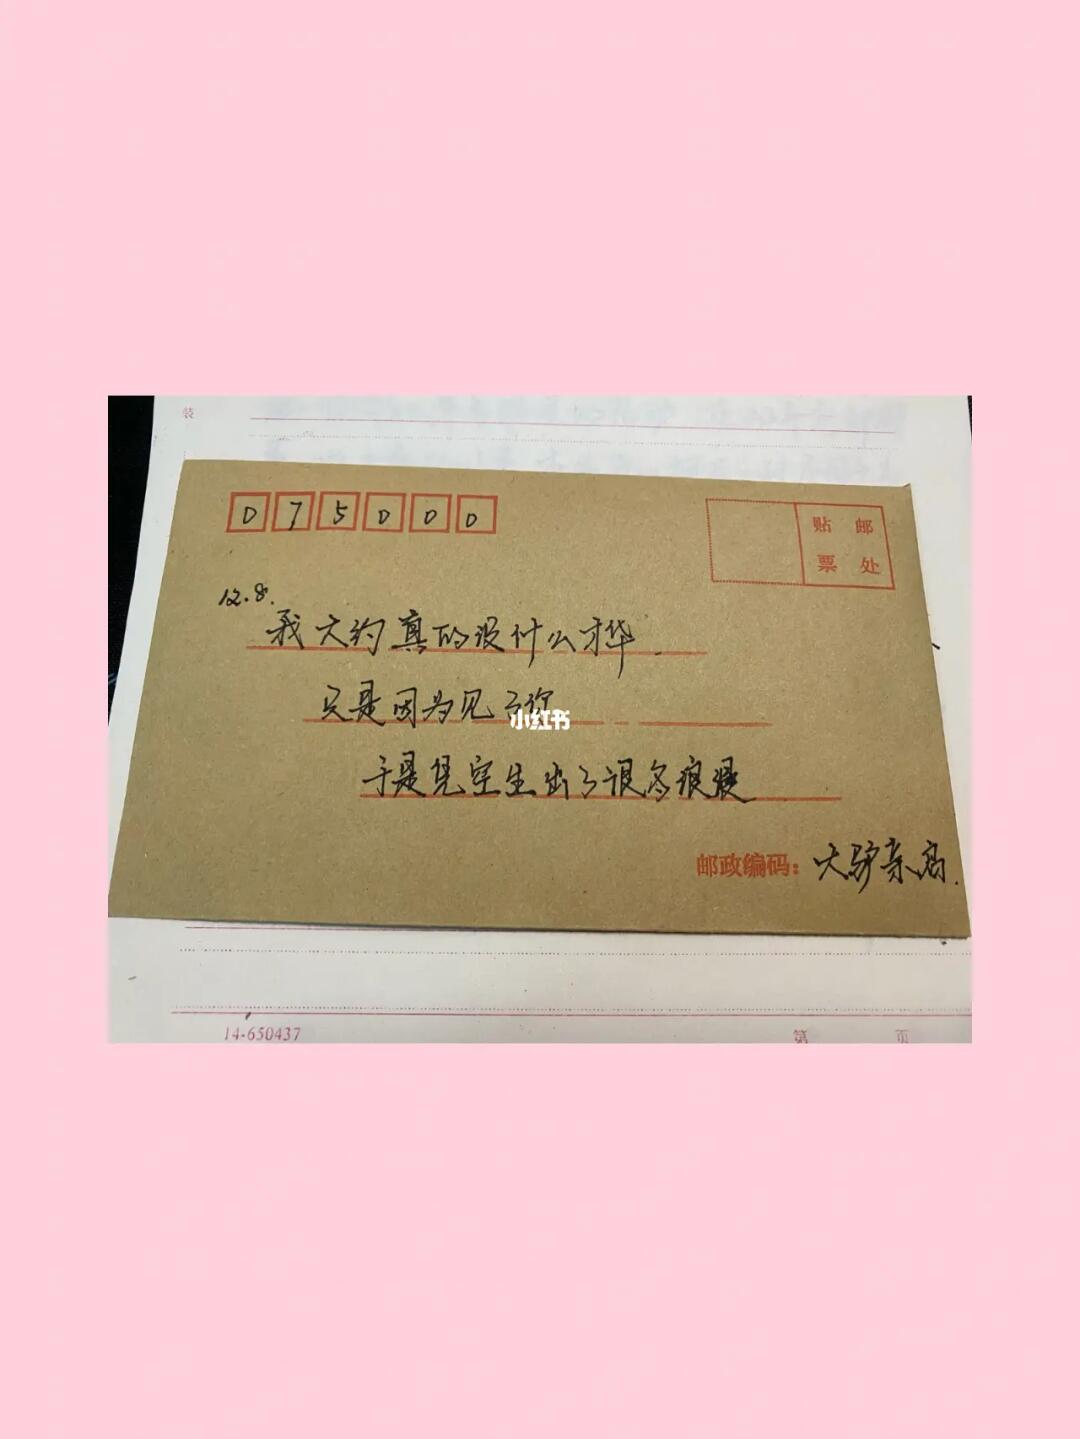 装
075000
贴 邮
票 处
12.8.
我大约真的没什么才华.
只是因为见了你
小红书
于是凭空生出了很多浪漫
邮政编码：大驴亲启.
14-650437
第 页